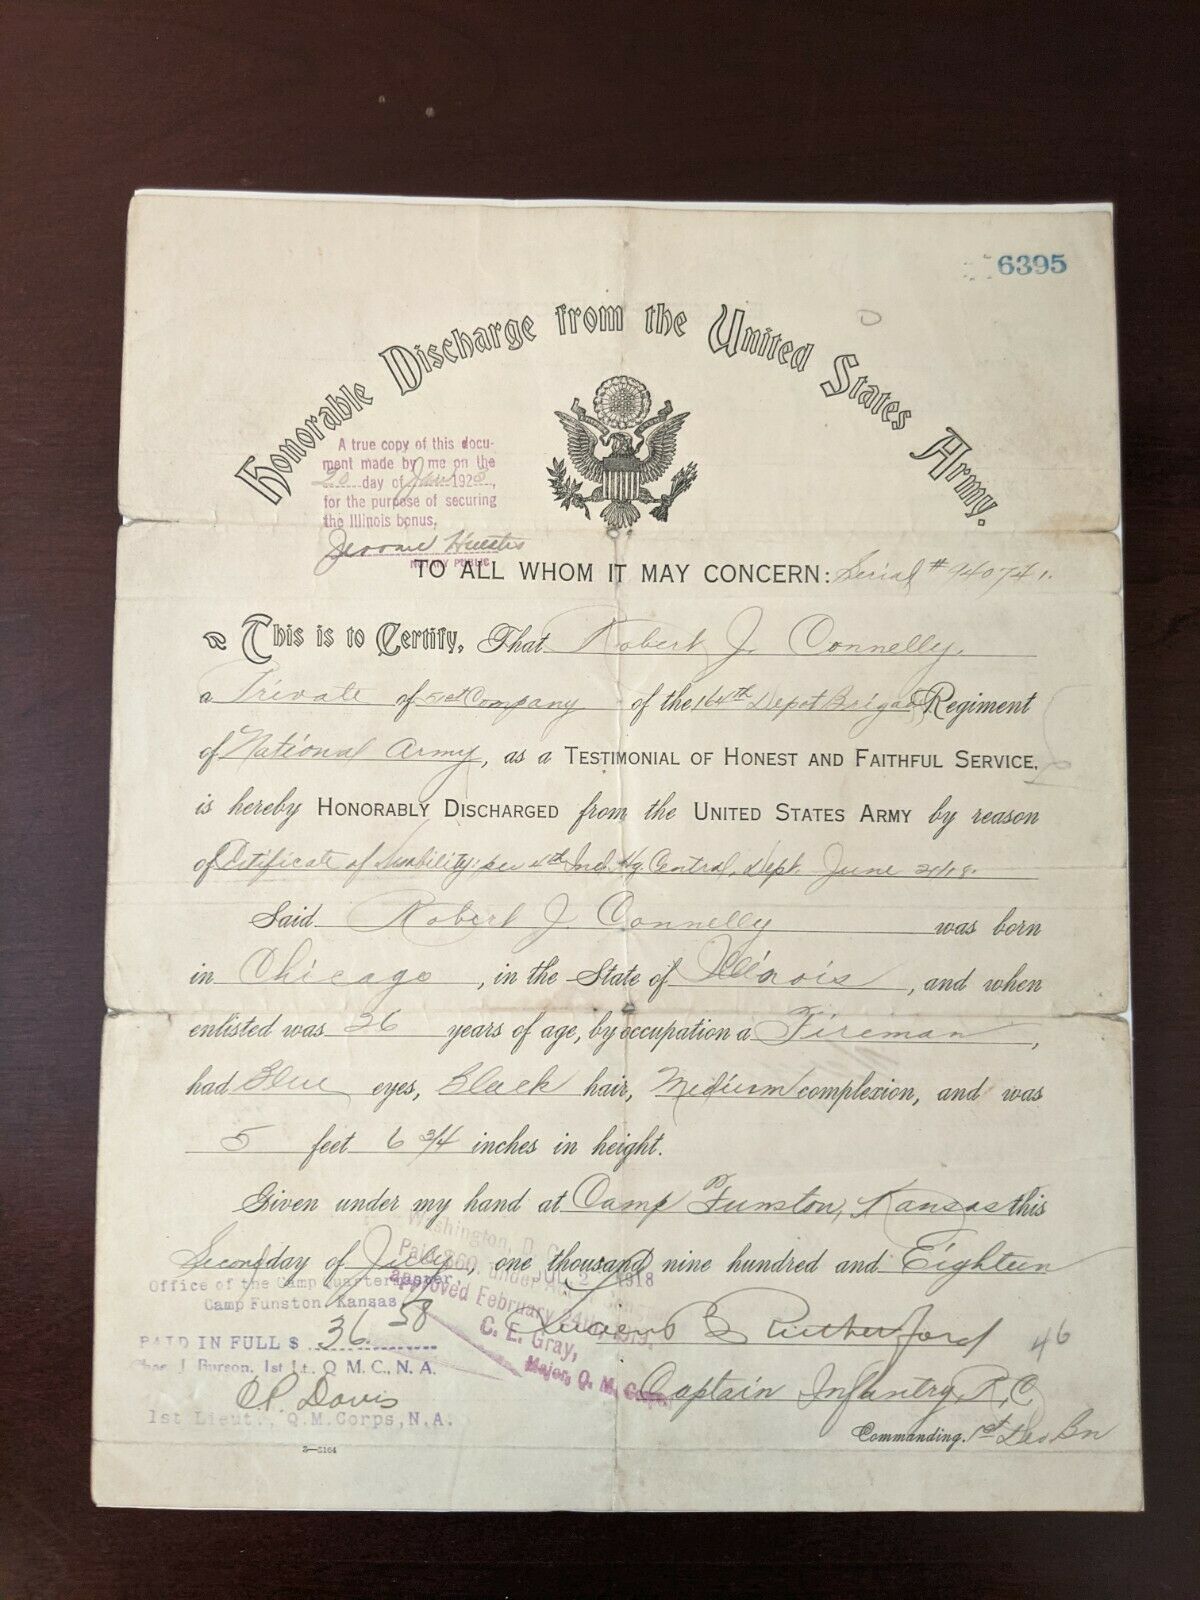 6395
Honorable Discharge from the United States Army.
A true copy of this docu-
ment made by me on the
20 day of Jan 1923,
for the purpose of securing
the Illinois bonus.
Jerome
NOTARY PUBLIC
TO ALL WHOM IT MAY CONCERN: Serial # 940741.
This is to Certify, That Robert J. Connelly,
a Private of Company of the 164th Depot Brigade Regiment
of National Army, as a TESTIMONIAL OF HONEST AND FAITHFUL SERVICE,
is hereby HONORABLY DISCHARGED from the UNITED STATES ARMY by reason
of Certificate of disability: per 4th Ind. Hq. Central, Dept. June
Said Robert J. Connelly was born
in Chicago, in the State of Illinois, and when
enlisted was 26 years of age, by occupation a Fireman,
had Blue eyes, Black hair, Medium complexion, and was
5 feet 6 3/4 inches in height.
Given under my hand at Camp Funston, Kansas this
Second day of July, one thousand nine hundred and Eighteen
Washington, D. C.
Paid $60, under Act
approved February 24th, 1919.
C. E. Gray,
Major, Q. M. Corps.
JUL 2 1918
Office of the Camp Quartermaster,
Camp Funston, Kansas
PAID IN FULL $ 36.58
Chas. J. Burson, 1st Lt. Q M.C., N.A.
Davis
1st Lieut., Q.M.Corps, N.A.
Rutherford
46
Captain Infantry, R.C.
Commanding. 1st Bn
3—3164